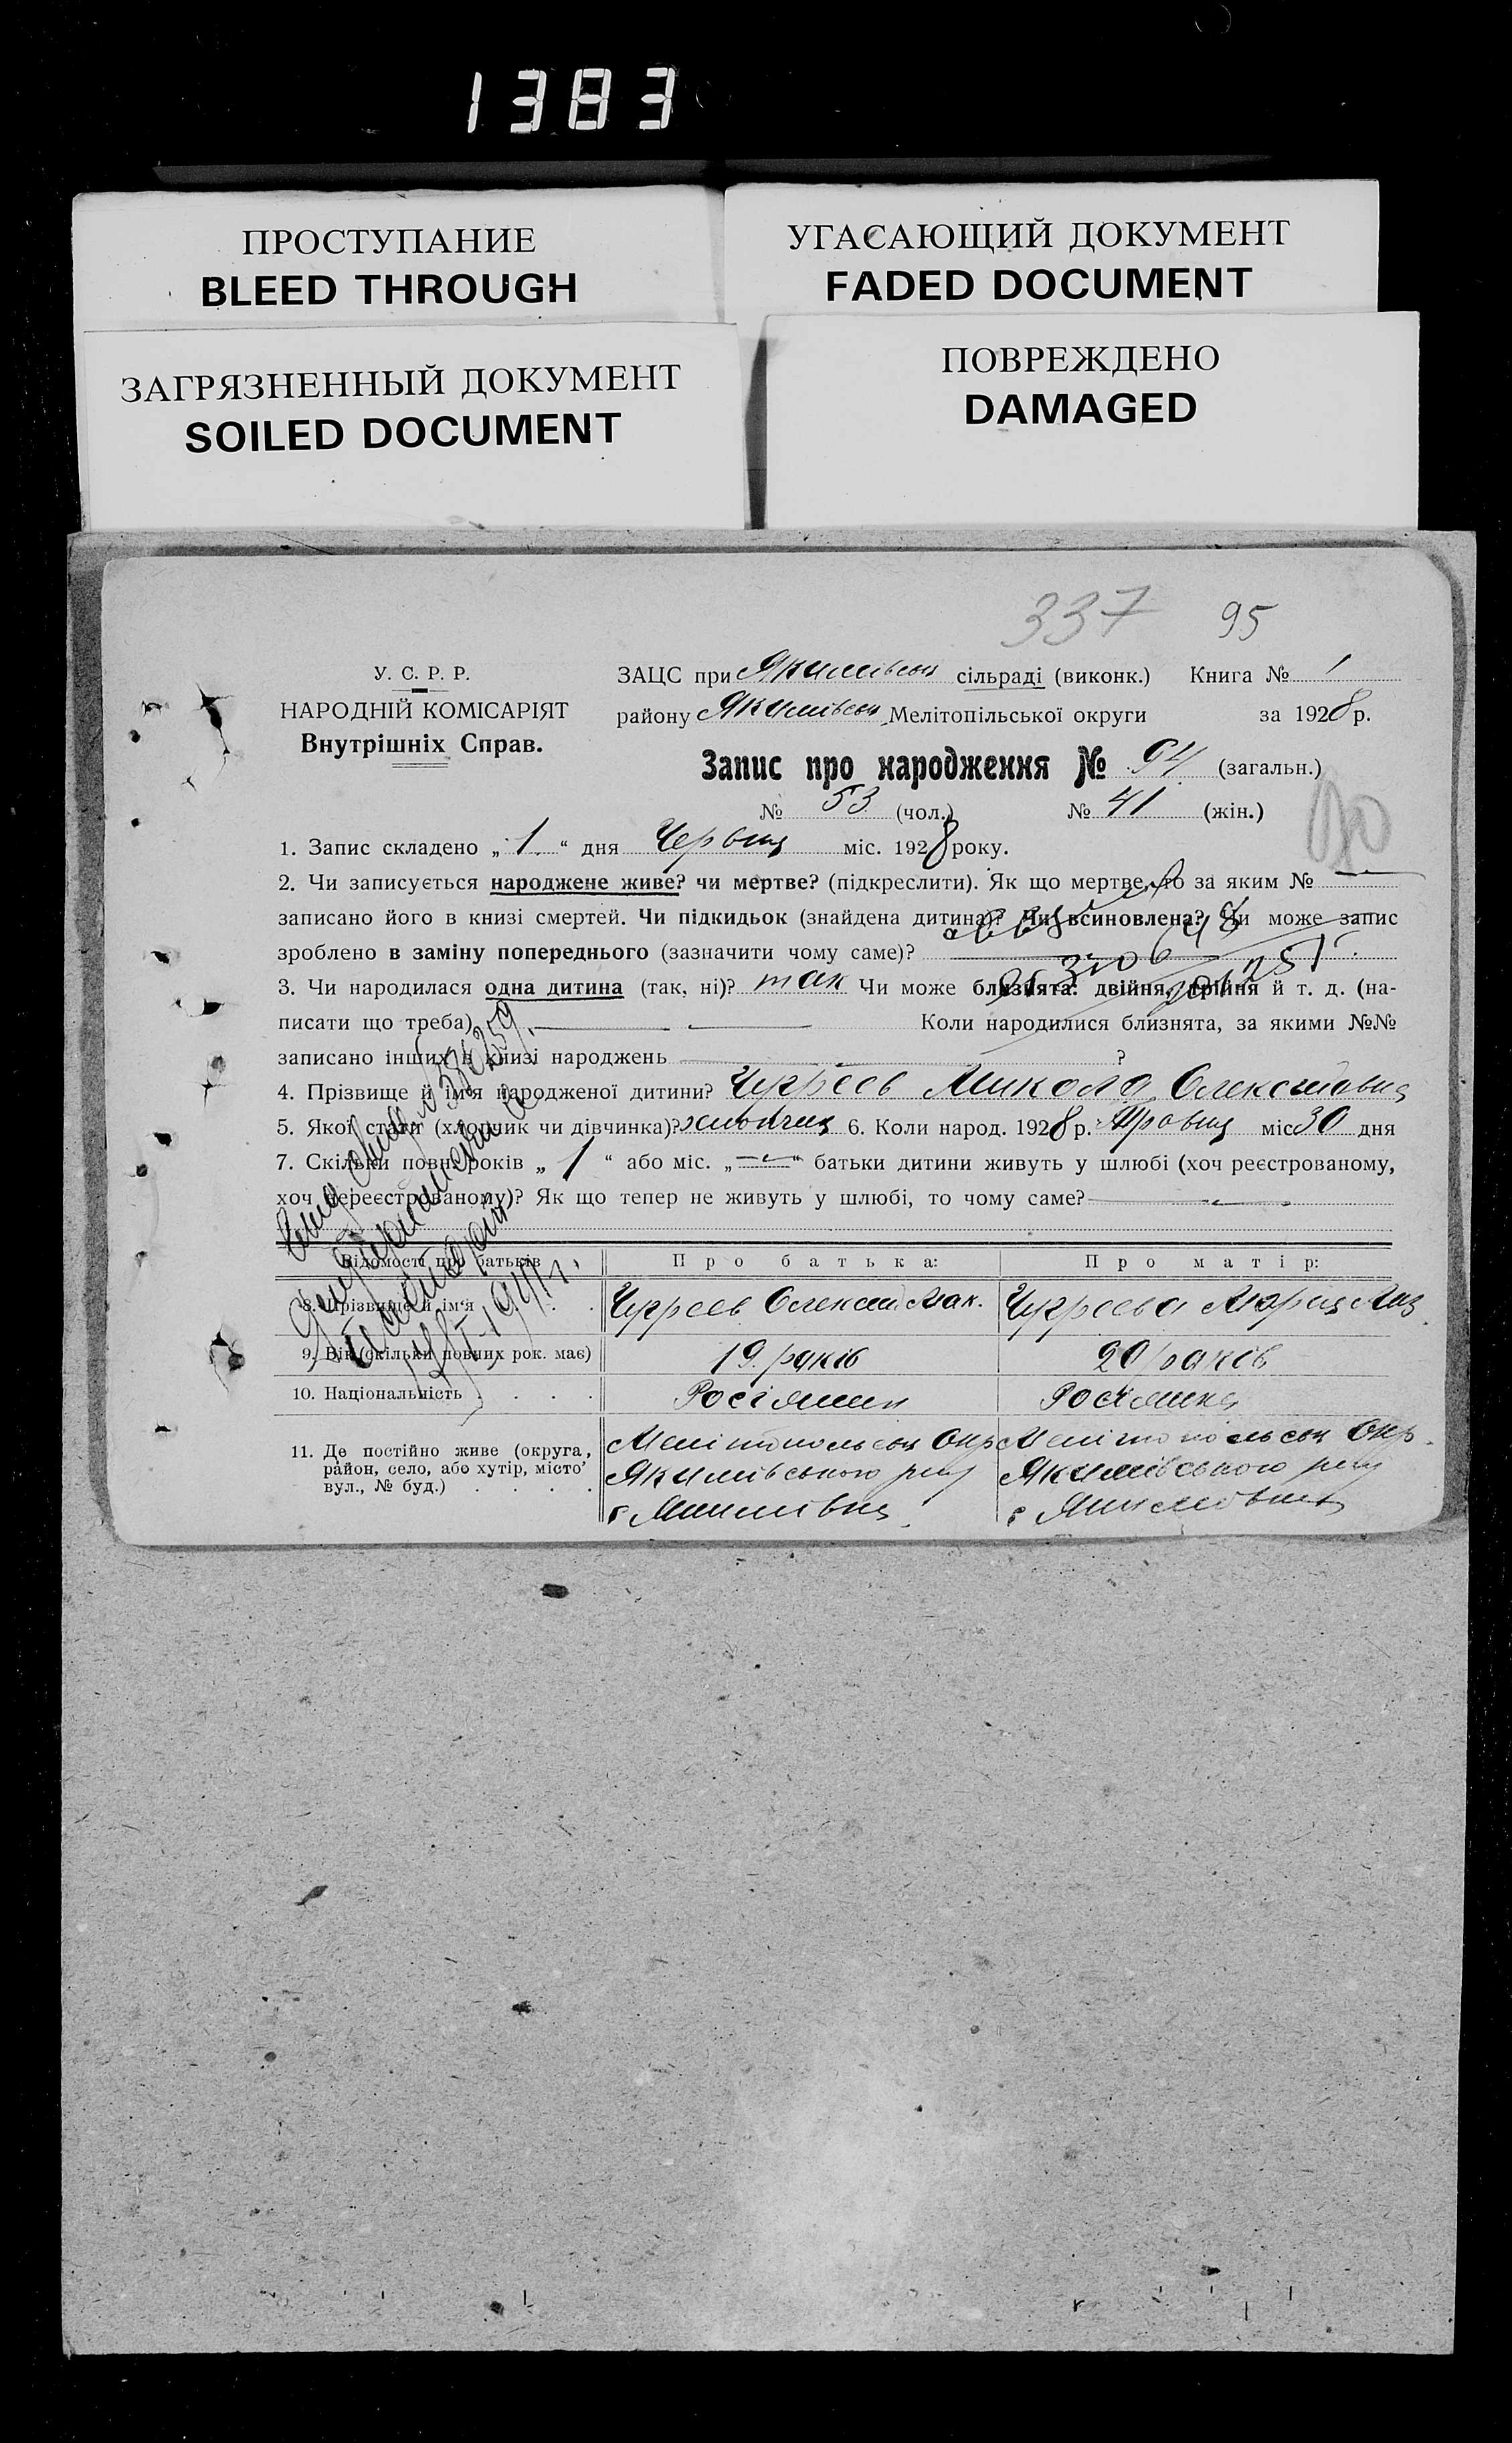 1383
ПРОСТУПАНИЕ
BLEED THROUGH
УГАСАЮЩИЙ ДОКУМЕНТ
FADED DOCUMENT
ЗАГРЯЗНЕННЫЙ ДОКУМЕНТ
SOILED DOCUMENT
ПОВРЕЖДЕНО
DAMAGED
337 95
У. С. Р. Р.
НАРОДНІЙ КОМІСАРІЯТ
Внутрішніх Справ.
ЗАЦС при Якимівськ сільраді (виконк.) Книга № 1
району Якимівськ Мелітопільської округи за 1928 р.
Запис про народження № 94 (загальн.)
№ 53 (чол.) № 41 (жін.)
1. Запис складено „ 1 “ дня Червня міс. 1928 року.
2. Чи записується народжене живе? чи мертве? (підкреслити). Як що мертве, то за яким №
записано його в книзі смертей. Чи підкидьок (знайдена дитина)? Чи всиновлена? Чи може запис
зроблено в заміну попереднього (зазначити чому саме)?
3. Чи народилася одна дитина (так, ні)? так Чи може близнята: двійня, трійня й т. д. (на-
писати що треба) Коли народилися близнята, за якими №№
записано інших в книзі народжень ?
4. Прізвище й ім'я народженої дитини? Чугреєв Микола Олексієвич
5. Якої статі (хлопчик чи дівчинка)? хлопчик 6. Коли народ. 1928 р. Травня міс 30 дня
7. Скільки повн. років „ 1 “ або міс. „ — “ батьки дитини живуть у шлюбі (хоч реєстрованому,
хоч нереєстрованому)? Як що тепер не живуть у шлюбі, то чому саме?
Відомості про батьків Про батька: Про матір:
8. Прізвище й ім'я Чугреєв Олексій Мак. Чугреєва Марія
9. Вік (скільки повних рок. має) 19 років 20 років
10. Національність Росіянин Росіянка
11. Де постійно живе (округа,
район, село, або хутір, місто
вул., № буд.)
Мелітопольськ Окр
Якимівського рну
с Якимівка
Мелітопольськ Окр.
Якимівського рну
с Якимівка